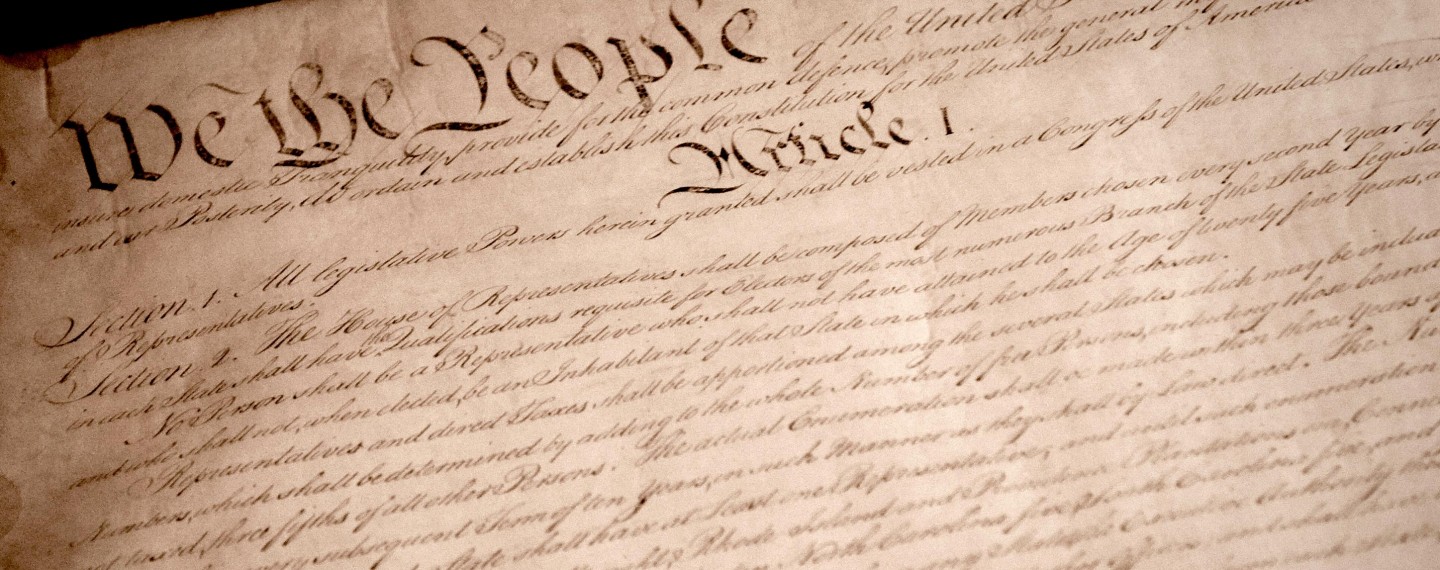 We the People of the United
insure domestic Tranquility, provide for the common defence, promote the general
and our Posterity, do ordain and establish this Constitution for the United States of America
Article. I.
Section. 1. All legislative Powers herein granted shall be vested in a Congress of the United States,
of Representatives.
Section. 2. The House of Representatives shall be composed of Members chosen every second Year by
in each State shall have the Qualifications requisite for Electors of the most numerous Branch of the State
No Person shall be a Representative who shall not have attained to the Age of twenty five Years,
and who shall not, when elected, be an Inhabitant of that State in which he shall be chosen.
Representatives and direct Taxes shall be apportioned among the several States which may be
Numbers, which shall be determined by adding to the whole Number of free Persons, including those bound
not taxed, three fifths of all other Persons. The actual Enumeration shall be made within three Years
every subsequent Term of ten Years, in such Manner as they shall by Law direct. The
State shall have at Least one Representative; and until such enumeration
Rhode Island and Providence Plantations one,
North Carolina five, South Carolina five, and
Executive Authority